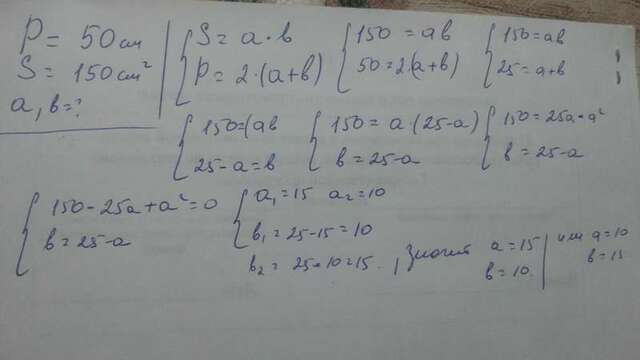 P = 50 см
S = 150 см²
a, b = ?
S = a · b
P = 2 · (a+b)
150 = ab
50 = 2·(a+b)
150 = ab
25 = a+b
150 = ab
25 - a = b
150 = a · (25-a)
b = 25-a
150 = 25a - a²
b = 25-a
150 - 25a + a² = 0
b = 25-a
a₁ = 15 a₂ = 10
b₁ = 25 - 15 = 10
b₂ = 25 - 10 = 15. , Значит a = 15 или a = 10
b = 10. b = 15